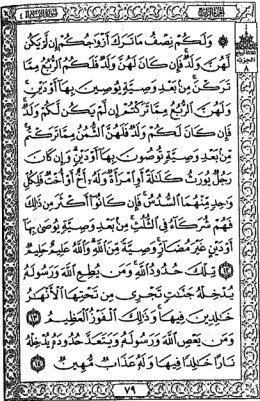 وَلَكُمْ نِصْفُ مَا تَرَكَ أَزْوَاجُكُمْ إِن لَّمْ يَكُن
لَّهُنَّ وَلَدٌ فَإِن كَانَ لَهُنَّ وَلَدٌ فَلَكُمُ الرُّبُعُ مِمَّا
تَرَكْنَ مِنۢ بَعْدِ وَصِيَّةٍ يُوصِينَ بِهَا أَوْ دَيْنٍ
وَلَهُنَّ الرُّبُعُ مِمَّا تَرَكْتُمْ إِن لَّمْ يَكُن لَّكُمْ وَلَدٌ
فَإِن كَانَ لَكُمْ وَلَدٌ فَلَهُنَّ الثُّمُنُ مِمَّا تَرَكْتُم
مِّنۢ بَعْدِ وَصِيَّةٍ تُوصُونَ بِهَا أَوْ دَيْنٍ وَإِن كَانَ
رَجُلٌ يُورَثُ كَلَالَةً أَوِ امْرَأَةٌ وَلَهُ أَخٌ أَوْ أُخْتٌ فَلِكُلِّ
وَاحِدٍ مِّنْهُمَا السُّدُسُ فَإِن كَانُوا أَكْثَرَ مِن ذَٰلِكَ
فَهُمْ شُرَكَاءُ فِي الثُّلُثِ مِنۢ بَعْدِ وَصِيَّةٍ يُوصَىٰ بِهَا
أَوْ دَيْنٍ غَيْرَ مُضَارٍّ وَصِيَّةً مِّنَ اللَّهِ وَاللَّهُ عَلِيمٌ حَلِيمٌ
١٢ تِلْكَ حُدُودُ اللَّهِ وَمَن يُطِعِ اللَّهَ وَرَسُولَهُ
يُدْخِلْهُ جَنَّاتٍ تَجْرِي مِن تَحْتِهَا الْأَنْهَارُ
خَالِدِينَ فِيهَا وَذَٰلِكَ الْفَوْزُ الْعَظِيمُ ١٣
وَمَن يَعْصِ اللَّهَ وَرَسُولَهُ وَيَتَعَدَّ حُدُودَهُ يُدْخِلْهُ
نَارًا خَالِدًا فِيهَا وَلَهُ عَذَابٌ مُّهِينٌ ١٤
٧٩